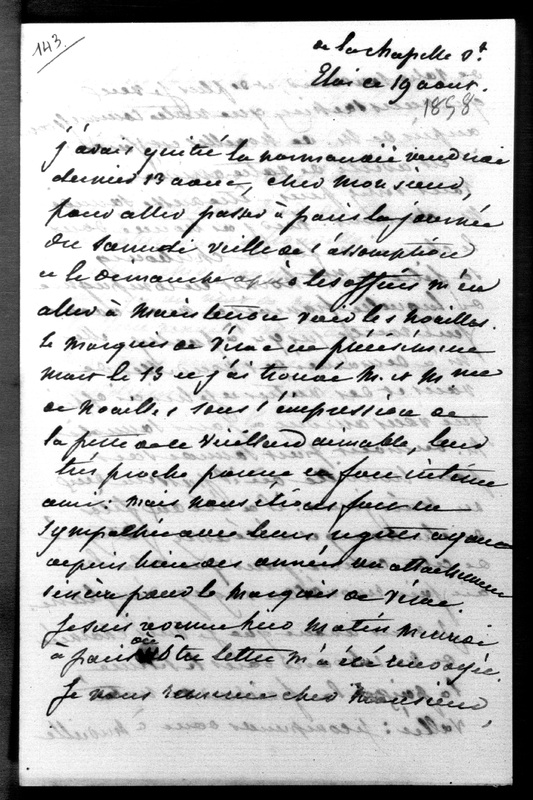 143.
de la chapelle St
Eloi ce 19 aout.
1858
j'avais quitté la normandie vendredi
dernier 13 aout, cher monsieur,
pour aller passer à paris la journée
du Samedi veille de l'assomption
et le dimanche après les offices m'en
aller à Maintenon voir les Noailles.
le Marquis de Vérac est précisément
mort le 13 et j'ai trouvé M. et Mme
de Noailles sous l'impression de
la perte de ce vieillard aimable, leur
très proche parent et fort intime
ami: mais nous étions fort en
sympathie avec leurs regrets ayant
depuis bien des années un attachement
sincère pour le Marquis de Vérac.
Je suis revenue hier matin mercredi
à paris où votre lettre m'a été renvoyée.
Je vous remercie cher monsieur